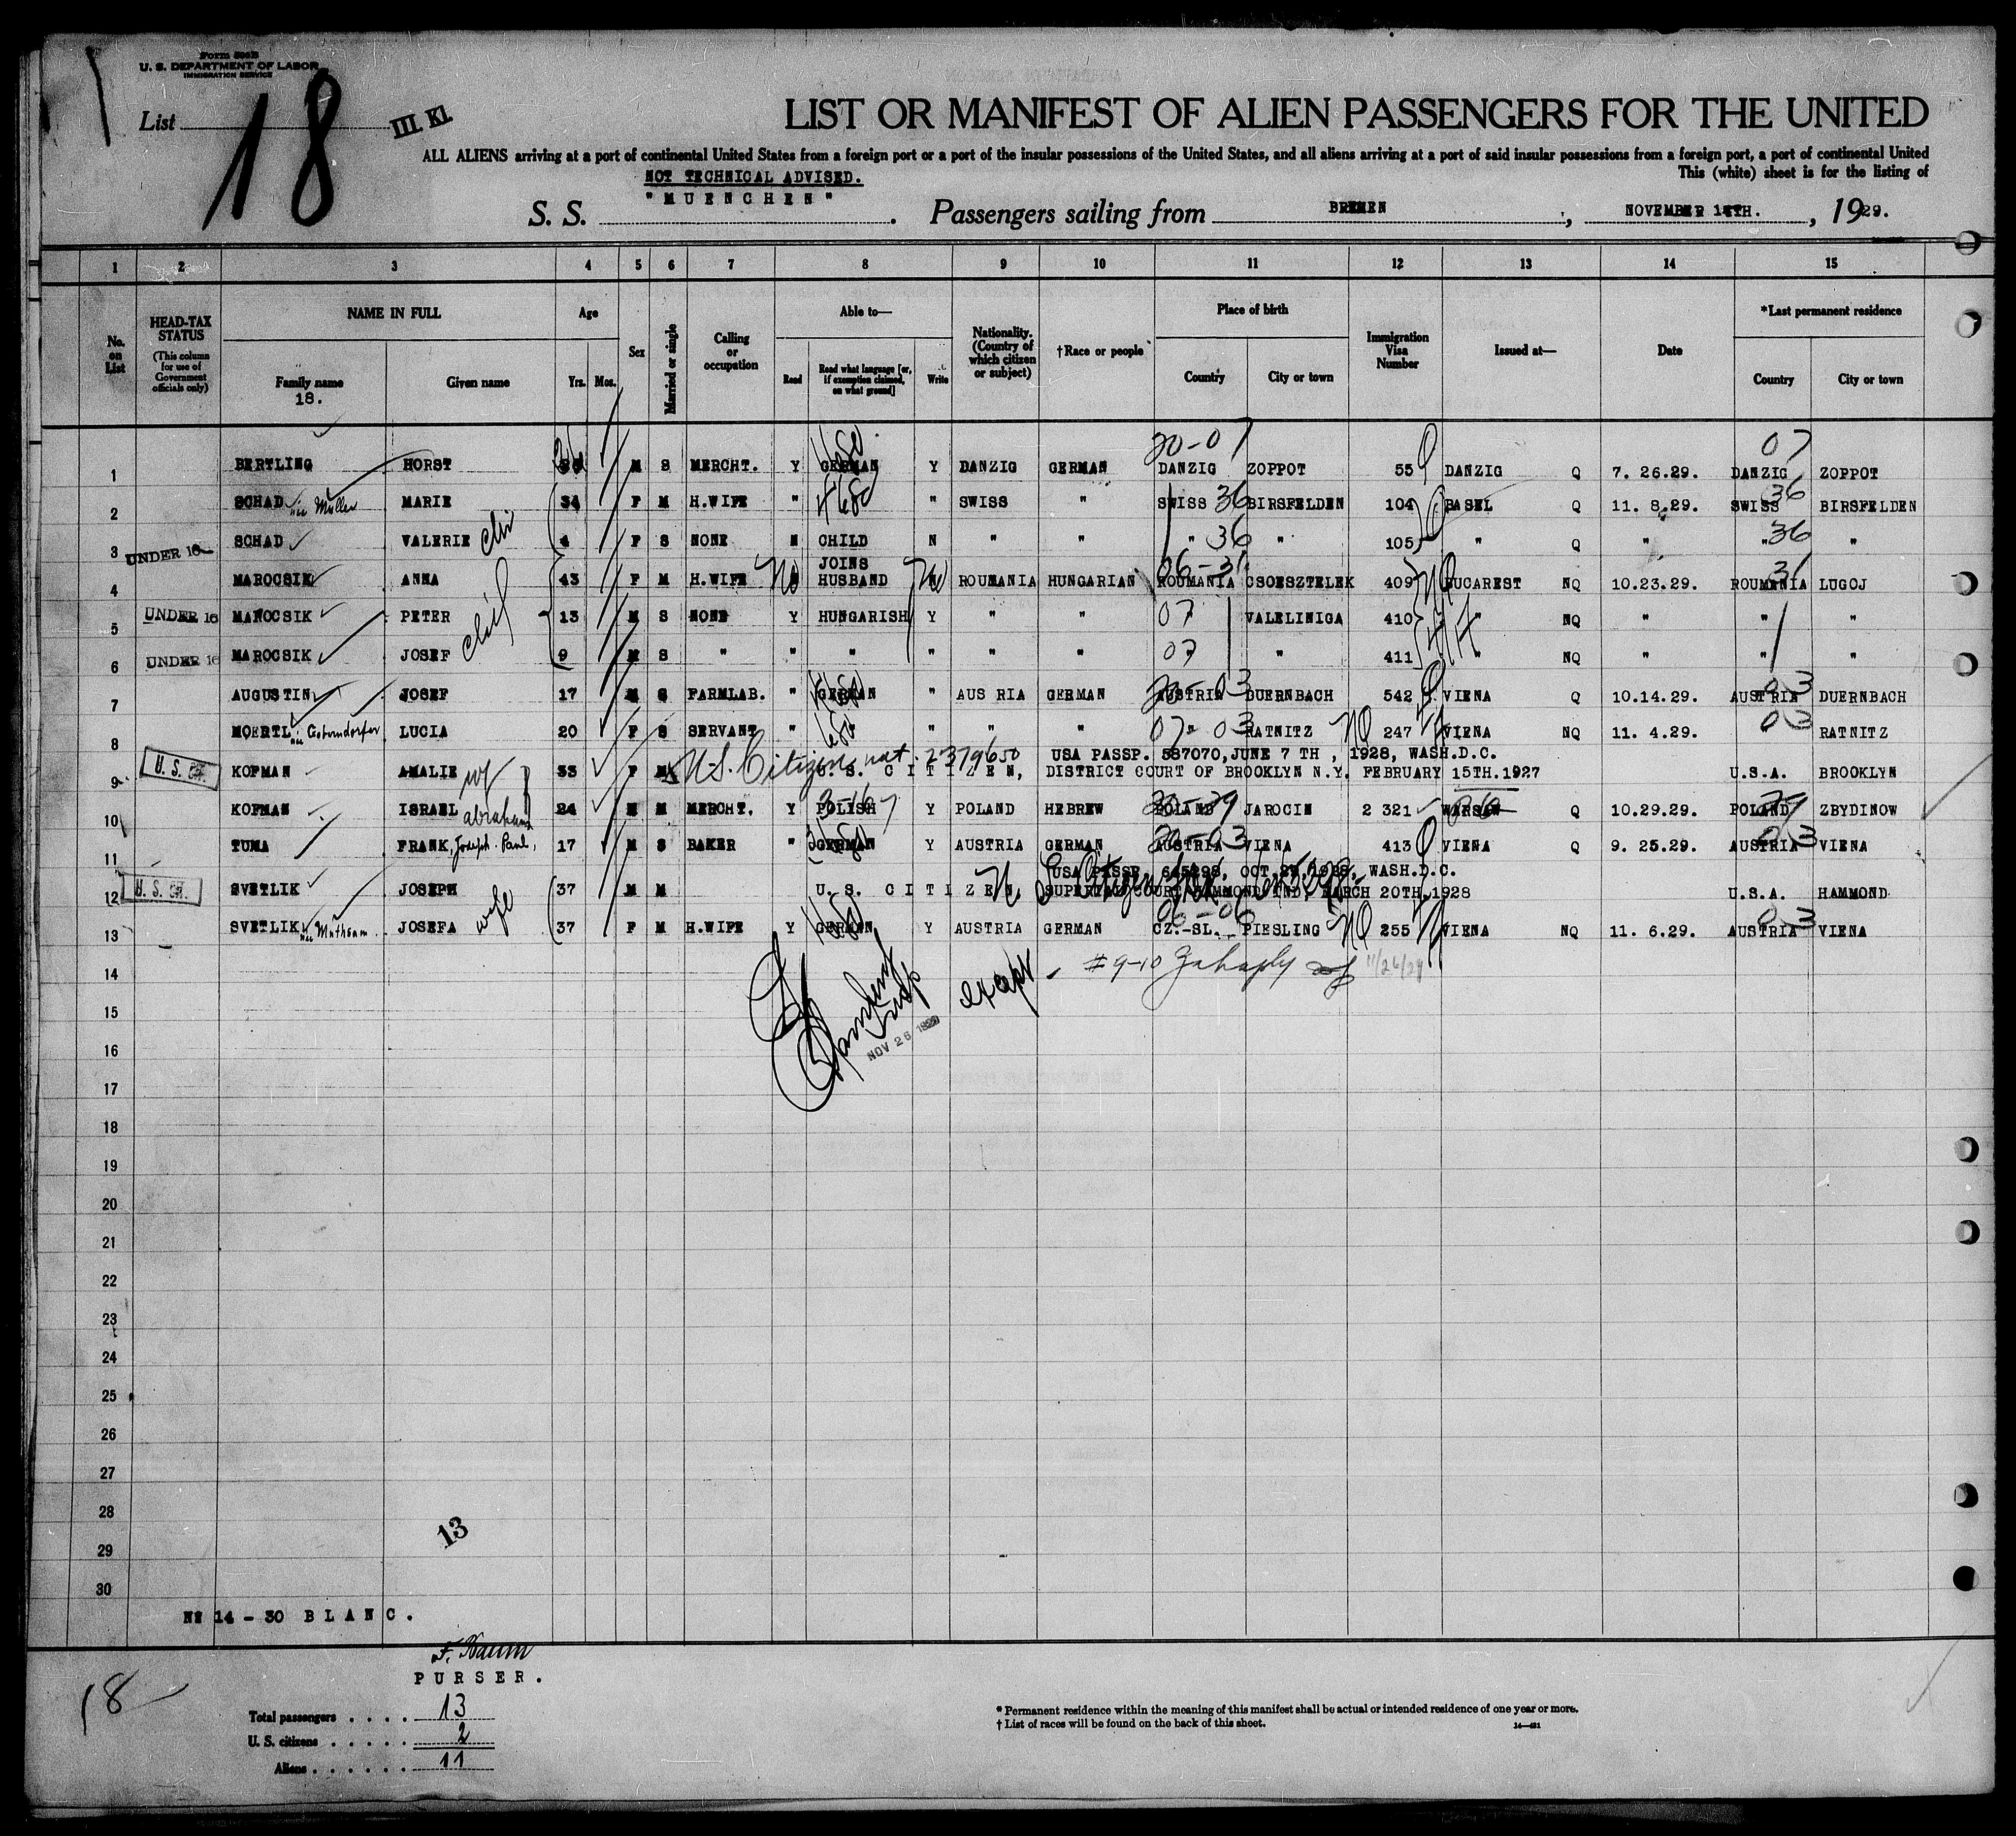 Form 500B
U. S. DEPARTMENT OF LABOR
IMMIGRATION SERVICE
List 18 III. Kl.
LIST OR MANIFEST OF ALIEN PASSENGERS FOR THE UNITED
ALL ALIENS arriving at a port of continental United States from a foreign port or a port of the insular possessions of the United States, and all aliens arriving at a port of said insular possessions from a foreign port, a port of continental United
NOT TECHNICAL ADVISED. This (white) sheet is for the listing of
S. S. "MUENCHEN". Passengers sailing from BREMEN, NOVEMBER 14TH., 1929.
1 2 3 4 5 6 7 8 9 10 11 12 13 14 15
No. on List
HEAD-TAX STATUS (This column for use of Government officials only)
NAME IN FULL
Family name 18.
Given name
Age
Yrs. Mos.
Sex
Married or single
Calling or occupation
Able to—
Read
Read what language [or, if exemption claimed, on what ground]
Write
Nationality. (Country of which citizen or subject)
†Race or people
Place of birth
Country
City or town
Immigration Visa Number
Issued at—
Date
*Last permanent residence
Country
City or town
20-07 07
1 BERTLING HORST M S MERCHT. Y GERMAN Y DANZIG GERMAN DANZIG ZOPPOT 55 DANZIG Q 7. 26.29. DANZIG ZOPPOT
2 SCHAD née Müller MARIE 34 F M H.WIFE " " SWISS " SWISS 36 BIRSFELDEN 104 BASEL Q 11. 8.29. SWISS 36 BIRSFELDEN
3 UNDER 16 SCHAD VALERIE 4 F S NONE N CHILD N " " " 36 " 105 " Q " " 36 "
4 MAROCSIK ANNA 43 F M H.WIFE No JOINS HUSBAND No ROUMANIA HUNGARIAN ROUMANIA 06-31 CSOESZTELEK 409 BUCAREST NQ 10.23.29. ROUMANIA 31 LUGOJ
5 UNDER 16 MAROCSIK PETER 13 M S NONE Y HUNGARISH Y " " 07 VALELINIGA 410 " NQ " " "
6 UNDER 16 MAROCSIK JOSEF 9 M S " " " " " " 07 " 411 " NQ " " "
7 AUGUSTIN JOSEF 17 M S FARMLAB. " GERMAN " AUS RIA GERMAN AUSTRIA 20-03 DUERNBACH 542 VIENA Q 10.14.29. AUSTRIA 03 DUERNBACH
8 MOERTL LUCIA 20 F S SERVANT " " " " " " 07-03 RATNITZ NQ 247 VIENA NQ 11. 4.29. 03 RATNITZ
U.S. Citizen nat. 2379650 USA PASSP. 587070, JUNE 7 TH , 1928, WASH.D.C.
9 U. S. Cit. KOFMAN AMALIE wf 33 F M U. S. CITIZEN, DISTRICT COURT OF BROOKLYN N.Y. FEBRUARY 15TH.1927 U.S.A. BROOKLYN
10 KOFMAN ISRAEL abraham 24 M M MERCHT. Y POLISH Y POLAND HEBREW POLAND JAROCIN 2 321 WARSOW Q 10.29.29. POLAND 29 ZBYDINOW
11 TUMA FRANK, Joseph. Paul, 17 M S BAKER " GERMAN Y AUSTRIA GERMAN AUSTRIA 20-03 VIENA 413 VIENA Q 9. 25.29. AUSTRIA 03 VIENA
USA PASSP. 645298, OCT. 1928, WASH.D.C.
12 U. S. Cit. SVETLIK JOSEPH 37 M M U. S. CITIZEN, SUPERIOR COURT HAMMOND IND. MARCH 20TH,1928 U.S.A. HAMMOND
13 SVETLIK née JOSEFA wife 37 F M H.WIFE Y GERMAN Y AUSTRIA GERMAN CZ.-SL. PIESLING NQ 255 VIENA NQ 11. 6.29. AUSTRIA 03 VIENA
14 except - #9-10 11/26/29
NOV 26 1929
15
16
17
18
19
20
21
22
23
24
25
26
27
28
13
29
30
No 14 - 30 BLANC.
F. Baum
PURSER.
18
Total passengers . . . . 13
U. S. citizens . . . . . 2
Aliens . . . . . . 11
* Permanent residence within the meaning of this manifest shall be actual or intended residence of one year or more.
† List of races will be found on the back of this sheet. 14—421